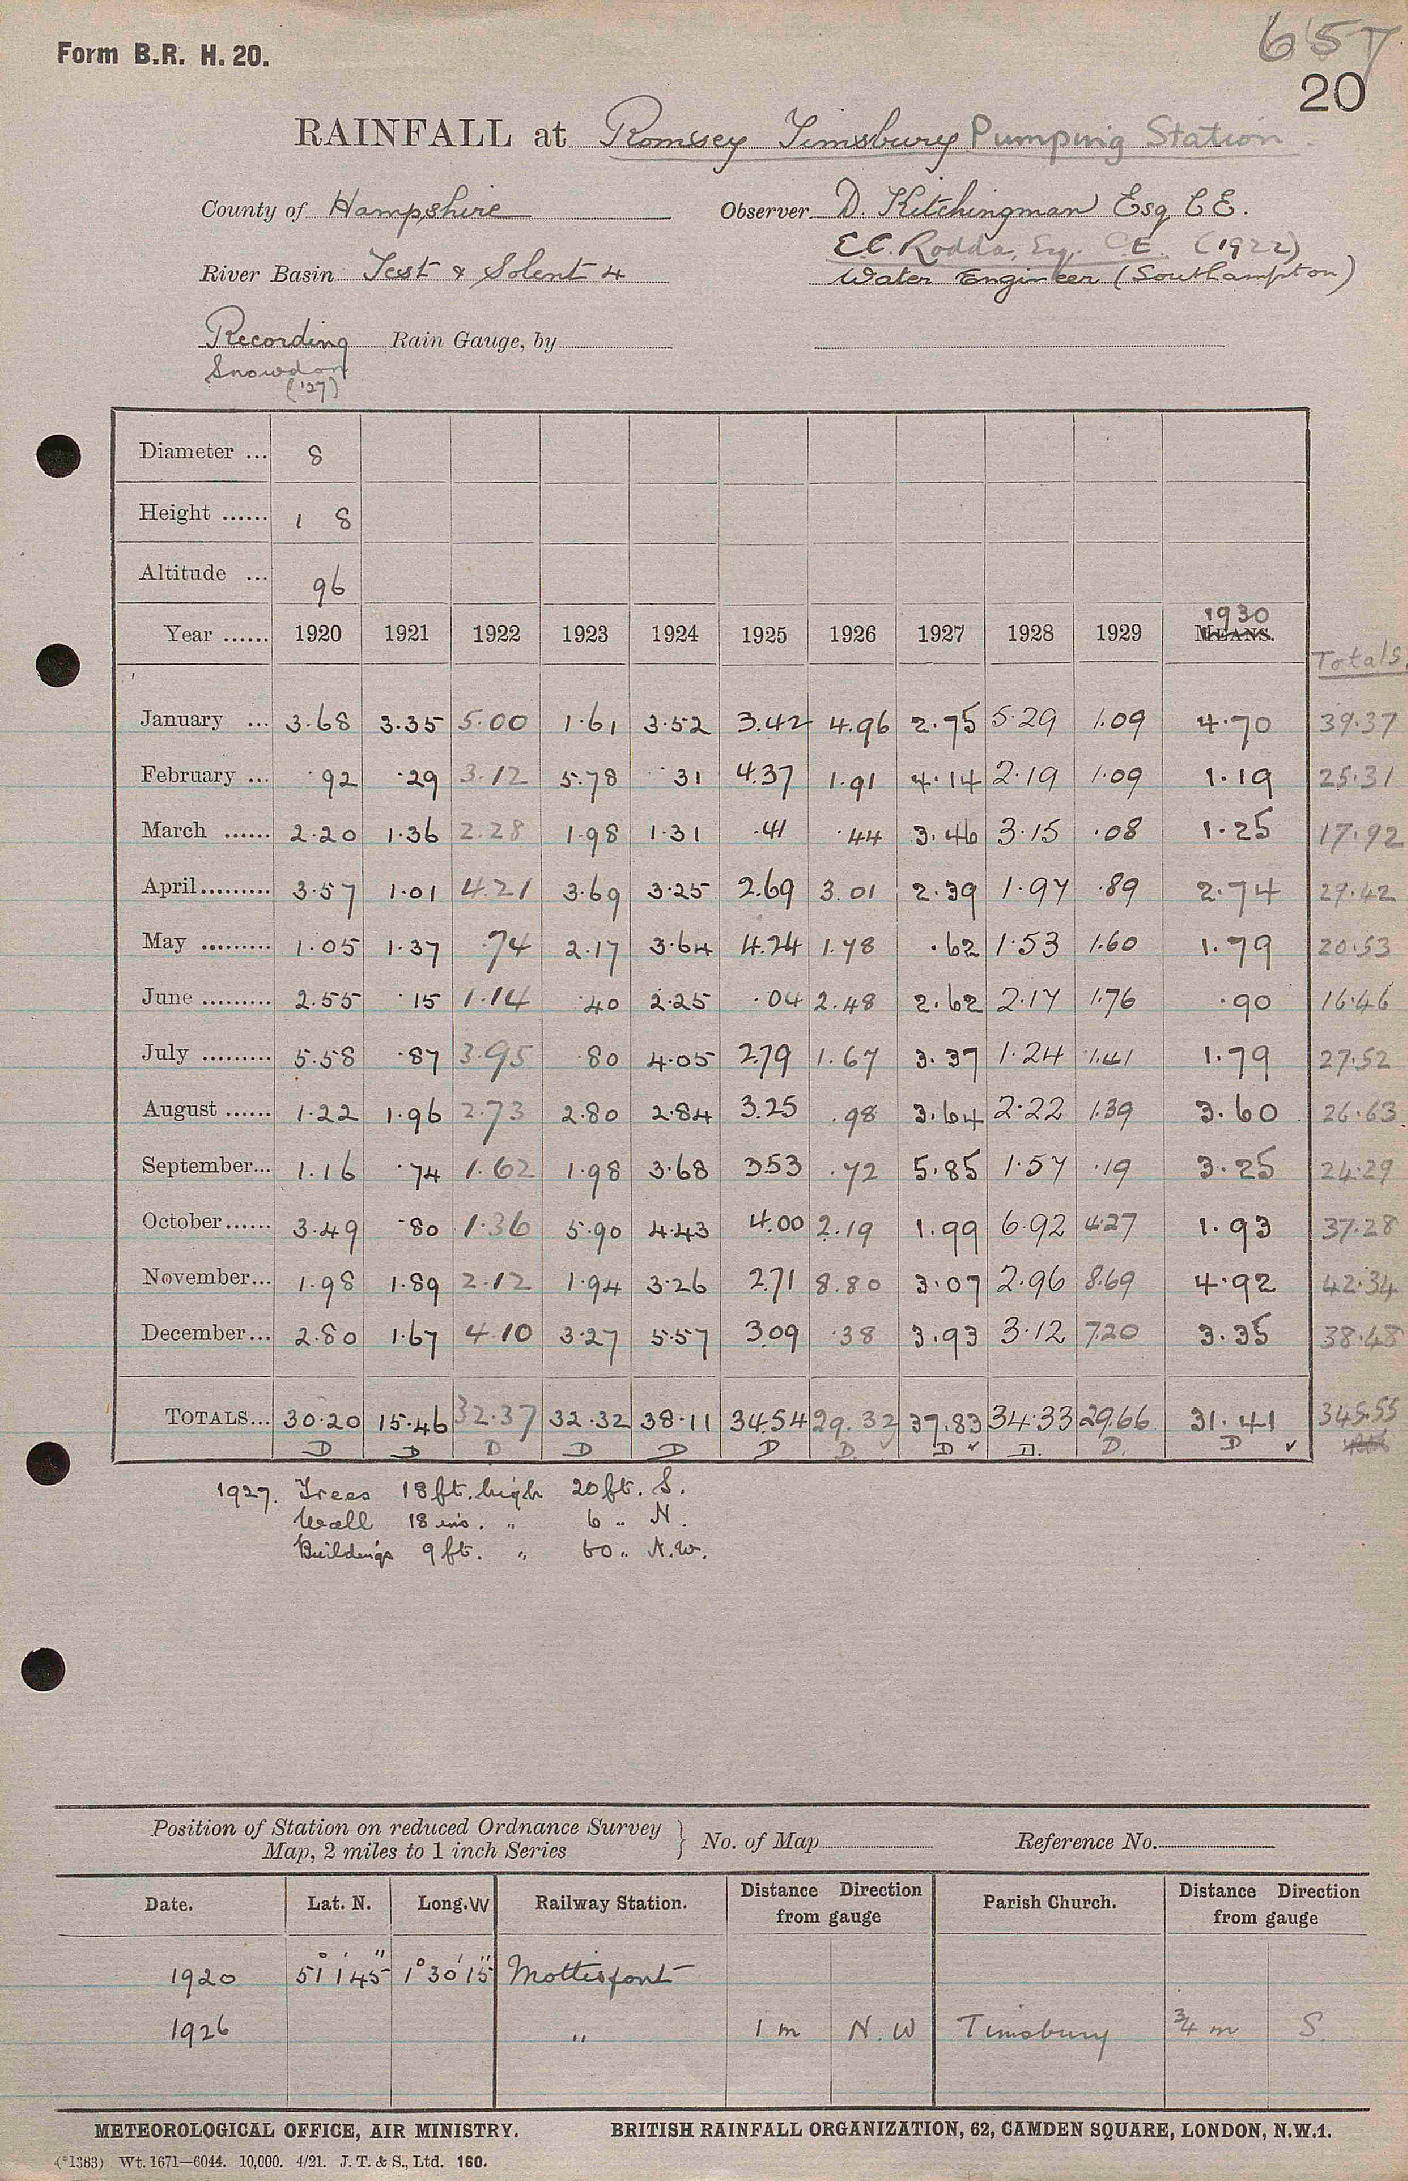 657
Form B.R. H. 20.
20
RAINFALL at Romsey Timsbury Pumping Station.
County of Hampshire Observer D. Kitchingman Esq C.E.
E.C. Rodda, Esq. C.E. (1922)
River Basin Test & Solent 4 Water Engineer (Southampton)
Recording Rain Gauge, by
Snowdon
('27)
Diameter ... 8
Height ...... 1 8
Altitude ... 96
Year ...... 1920 1921 1922 1923 1924 1925 1926 1927 1928 1929 1930 MEANS. Totals.
January ... 3.68 3.35 5.00 1.61 3.52 3.42 4.96 2.75 5.29 1.09 4.70 39.37
February ... .92 .29 3.12 5.78 .31 4.37 1.91 4.14 2.19 1.09 1.19 25.31
March ...... 2.20 1.36 2.28 1.98 1.31 .41 .44 3.46 3.15 .08 1.25 17.92
April......... 3.57 1.01 4.21 3.69 3.25 2.69 3.01 2.39 1.97 .89 2.74 29.42
May ......... 1.05 1.37 .74 2.17 3.64 4.24 1.78 .62 1.53 1.60 1.79 20.53
June ......... 2.55 .15 1.14 .40 2.25 .04 2.48 2.62 2.17 1.76 .90 16.46
July ......... 5.58 .87 3.95 .80 4.05 2.79 1.67 3.37 1.24 1.41 1.79 27.52
August ...... 1.22 1.96 2.73 2.80 2.84 3.25 .98 3.64 2.22 1.39 3.60 26.63
September... 1.16 .74 1.62 1.98 3.68 3.53 .72 5.85 1.57 .19 3.25 24.29
October...... 3.49 .80 1.36 5.90 4.43 4.00 2.19 1.99 6.92 4.27 1.93 37.28
November... 1.98 1.89 2.12 1.94 3.26 2.71 8.80 3.07 2.96 8.69 4.92 42.34
December... 2.80 1.67 4.10 3.27 5.57 3.09 .38 3.93 3.12 7.20 3.35 38.48
TOTALS... 30.20 15.46 32.37 32.32 38.11 34.54 29.32 37.83 34.33 29.66 31.41 345.55
D D D D D D D. D ✓ D. D. D ✓
1927. Trees 18 ft. high 20 ft. S.
Wall 18 ins. " 6 " N.
Buildings 9 ft. " 60 " N.W.
Position of Station on reduced Ordnance Survey
Map, 2 miles to 1 inch Series } No. of Map Reference No.
Date. Lat. N. Long. W Railway Station. Distance Direction from gauge Parish Church. Distance Direction from gauge
1920 51° 1' 45" 1° 30' 15" Mottisfont
1926 " 1 m N.W Timsbury ¾ m S.
METEOROLOGICAL OFFICE, AIR MINISTRY. BRITISH RAINFALL ORGANIZATION, 62, CAMDEN SQUARE, LONDON, N.W.1.
(*1383) Wt. 1671—6044. 10,000. 4/21. J. T. & S., Ltd. 160.